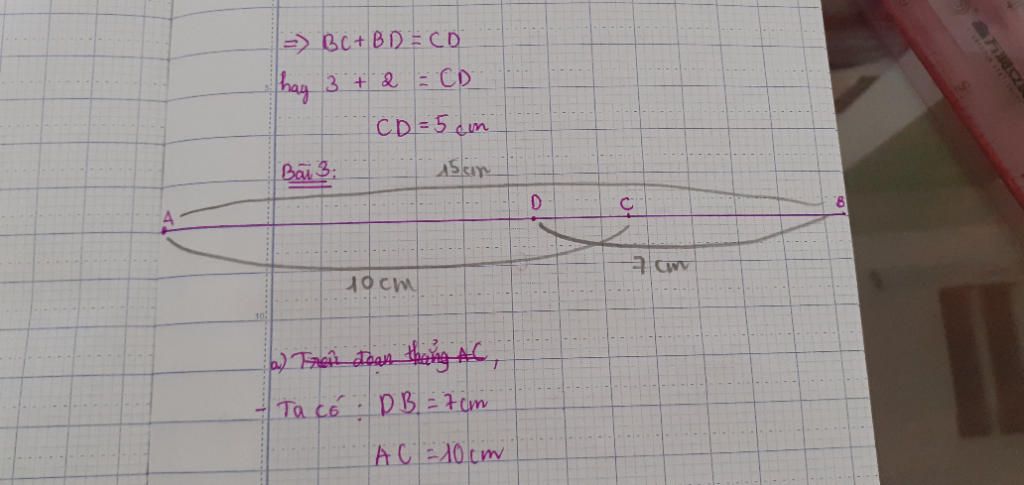 => BC + BD = CD
hay 3 + 2 = CD
CD = 5 cm
Bài 3:
15cm
A D C B
10cm
7 cm
10
a) Trên đoạn thẳng AC,
- Ta có : DB = 7cm
AC = 10cm